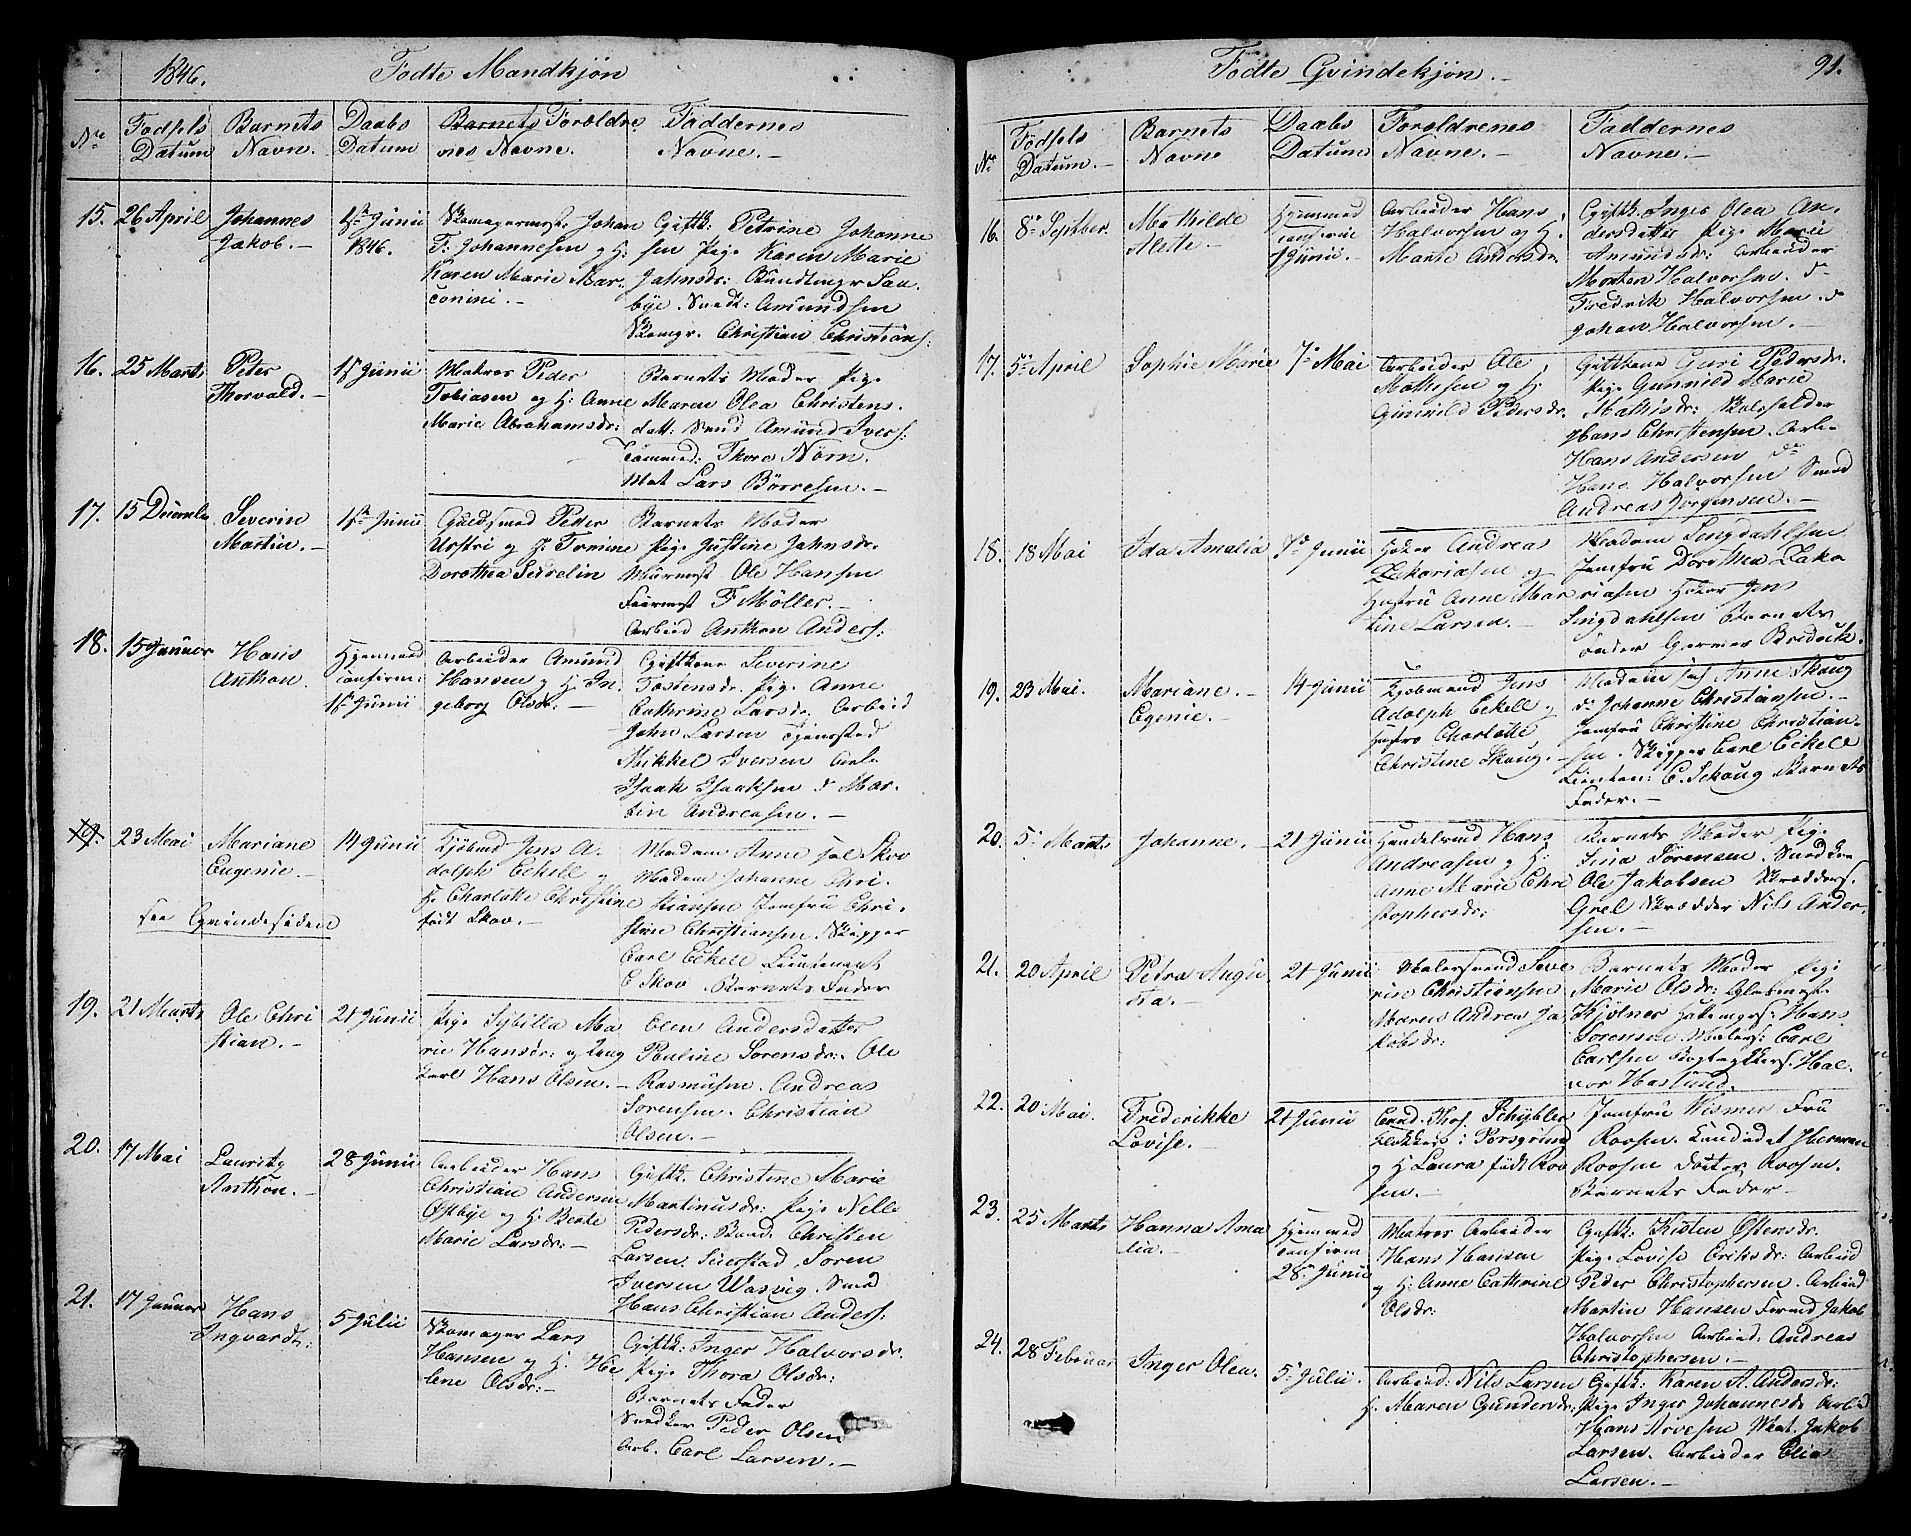 1846.
Fødte Mandkjøn
No
Fødsels Datum
Barnets Navn.
Daabs Datum
Barnets Forældrenes Navne.
Faddernes Navne.
15. 26 April
Johannes Jakob.
1ste Junii 1846.
Skomagermest: Johan
F: Johannesen og H:
Karen Marie Mar
conini.
Giftk: Petrine Johanne
sen Pige Karen Marie
Jahnsdr: Bundtmgr Sau
bye. Snedk: Amundsen
Skomgr. Christian Christians:
16. 25 Marts
Peter Thorvald.
1ste Junii
Matros Peder
Tobiasen og H: Anne
Marie Abrahamsdr:
Barnets Moder Pige
Maren Olea Christens
datt: Smed Amund Ivers:
Tømmermd: Thore Nørn
Mat Lars Børresen.
17. 15 Decembr
Severin Martin.
1ste Junii
Guldsmed Peder
og H: Tomine
Dorothea
Barnets Moder
Pige Justine Jahnsdr.
Murmest Ole Hansen
Feiermest F Møller.
Arbeid Anthon Anders:
18. 15 Januar
Hans Anthon.
Hjemmed confirm: 1ste Junii
Arbeider Amund
Hansen og H: In
geborg Olsdr:
Giftkone Severine
Tostensdr. Pige Anne
Cathrine Larsdr. Arbeid
John Larsen Tjenested
Mikkel Iversen Arb.
Isaak Isaaksen do Mar
tin Andreasen.
19. 23 Mai
Mariane Eugenie.
14 Junii
Kjøbmd Jens A.
dolph Eckell og
H: Charlotte Christine
født Skov.
Madam Anne fød Skov
Madam Johanne Chri
stiansen Jomfru Chri
stine Christiansen. Skipper
Carl Eckell Lieutenant
C Skov Barnets Fader
see Qvindesiden
19. 21 Marts
Ole Chri stian.
21 Junii
Pige Sybilla Ma
rie Hansdr: og Ung
karl Hans Olsen.
Olea Andersdatter
Pauline Sørensdr. Ole
Rasmusen. Andreas
Sørensen. Christian
Olsen.
20. 17 Mai
Lauritz Anthon.
28 Junii
Arbeider Hans
Christian Andersen
Østbye og H: Berte
Marie Larsdr:
Giftk: Christine Marie
Martinusdr: Pige Nelle
Pedersdr: Christen
Larsen Seierstad, Søren
Iversen Wasvig. Smed
Hans Christian Anders:
21. 17 Januar
Hans Ingvardt:
5 Julii
Skomager Lars
Hansen og H: He
lene Olsdr:
Giftk: Inger Halvorsdr.
Pige Thora Olsdr:
Barnets Fader
Snedker Peder Olsen
Arb. Carl Larsen.
Fødte Qvindekjøn.
91.
No
Fødsels Datum.
Barnets Navne
Daabs Datum
Forældrenes Navne.
Faddernes Navne.
16. 8de Septbr
Mathilde Alette
Hjemmed confirm 1 Junii.
Arbeider Hans
Halvorsen og H:
Marte Andersdr
Giftk. Inger Olea An
dersdatter Pige Marie
Amundsdr: Arbeider
Morten Halvorsen. do
Fredrik Halvorsen. do
Johan Halvorsen.
17. 5te April
Sophie Marie
7de Mai
Arbeider Ole
Mathisen og H:
Gunnild Pedersdr
Giftkone Guri Pedersdr.
Pige Gunnild Marie
Mathisdr: Skoleholder
Hans Christensen. Arb.
Hans Andersen do
Hans Halvorsen Smed
Andreas Jørgensen.
18. 18 Mai
Ida Amalia
7de Junii
Høker Andreas
Zekariasen og
Hustru Anne Mar
tine Larsen.
Madam Lengdahlsen
Jomfru Dorothea Zaka
riasen Høker Jens
Lingdahlsen Barnets
Fader Garver Bridek.
19. 23 Mai.
Mariane. Egenie.
14 Junii
Kjøbmand Jens
Adolph Eckell og
Hustro Charlotte
Christine Skoug.
Madam fød Anne Skoug
do Johanne Christiansen.
Jomfru Christine Christian
sen. Skipper Carl Eckell
Lieuten: C. Skoug Barnets
Fader.
20. 5te Marts
Johanne.
21 Junii
Handelsmd Hans
Andreasen og H:
Anne Marie Chri
stophersdr:
Barnets Moder Pige
Sørensen. Snedker
Ole Jakobsen Skrædders.
Grel Skrædder Nils Ander
sen.
21. 20 April
Petra Augu sta.
21 Junii
Malersvend Seve
rin Christiansen
Maren Andrea Ja
kobsdr:
Barnets Moder Pige
Marie Olsdr: Glasmest
Kjølner Hans
Sørensen Malers: Carl
Carlsen Bogtrykkers. Hal
vor Haslund.
22. 20 Mai.
Frederikke Lovise.
21 Junii
Cand. Thos. Schybler
i Porsgrund
og H Laura født Roo
sen.
Jomfru Wismer Fru
Roosen. Candidat Herman
Roosen Doctor Roosen.
Barnets Fader
23. 25 Marts
Hanna Ama lia.
Hjemmed confirm 28de Junii
Matros Arbeider
Hans Hansen
og H: Anne Cathrine
Olsdr:
Giftk: Kisten Ostensdr.
Pige Lovise Eriksdr: Arbeid
Peder Christophersen. Arbeid
Martin Hansen Jakob
Halvorsen Arbeid: Andreas
Christophersen.
24. 28 Februar
Inger Olea.
5te Julii.
Arbeid: Nils Larsen
H. Maren Gundersdr:
Giftk: Karen A. Andersdr:
Pige Inger Johannesdr Arbeid
Hans Arvesen Mat. Jakob
Larsen. Arbeider Elia
Larsen.